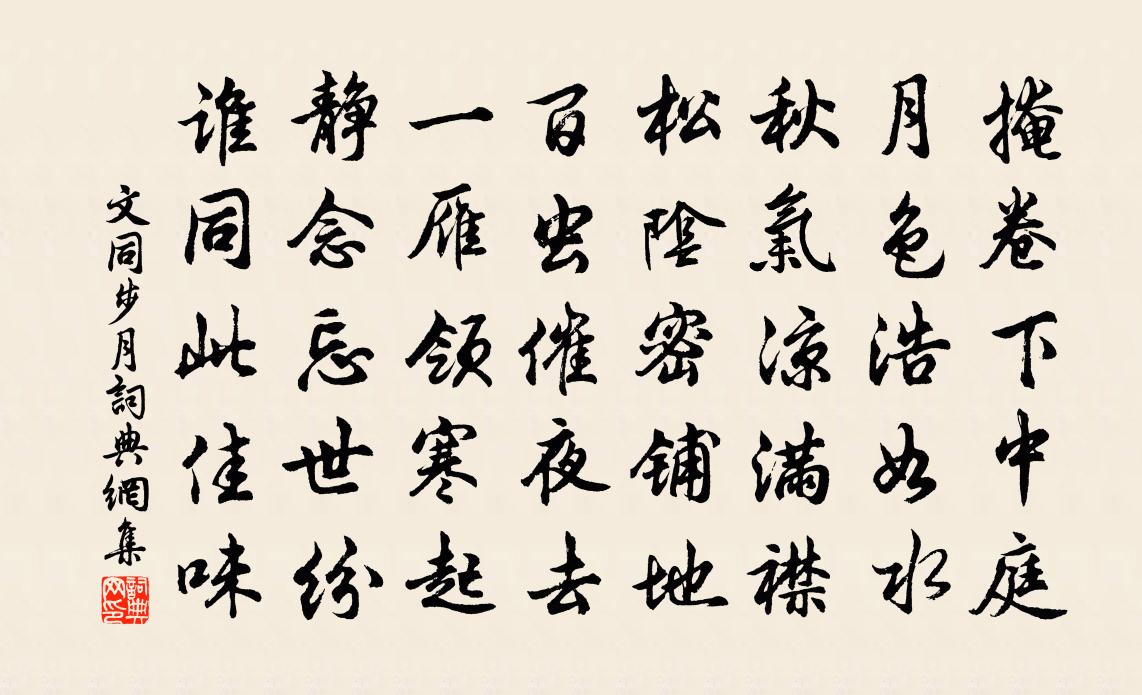 掩卷下中庭
月色浩如水
秋氣涼滿襟
松陰密鋪地
百虫催夜去
一雁領寒起
靜念忘世紛
誰同此佳味
文同步月詞典網集
詞典網印